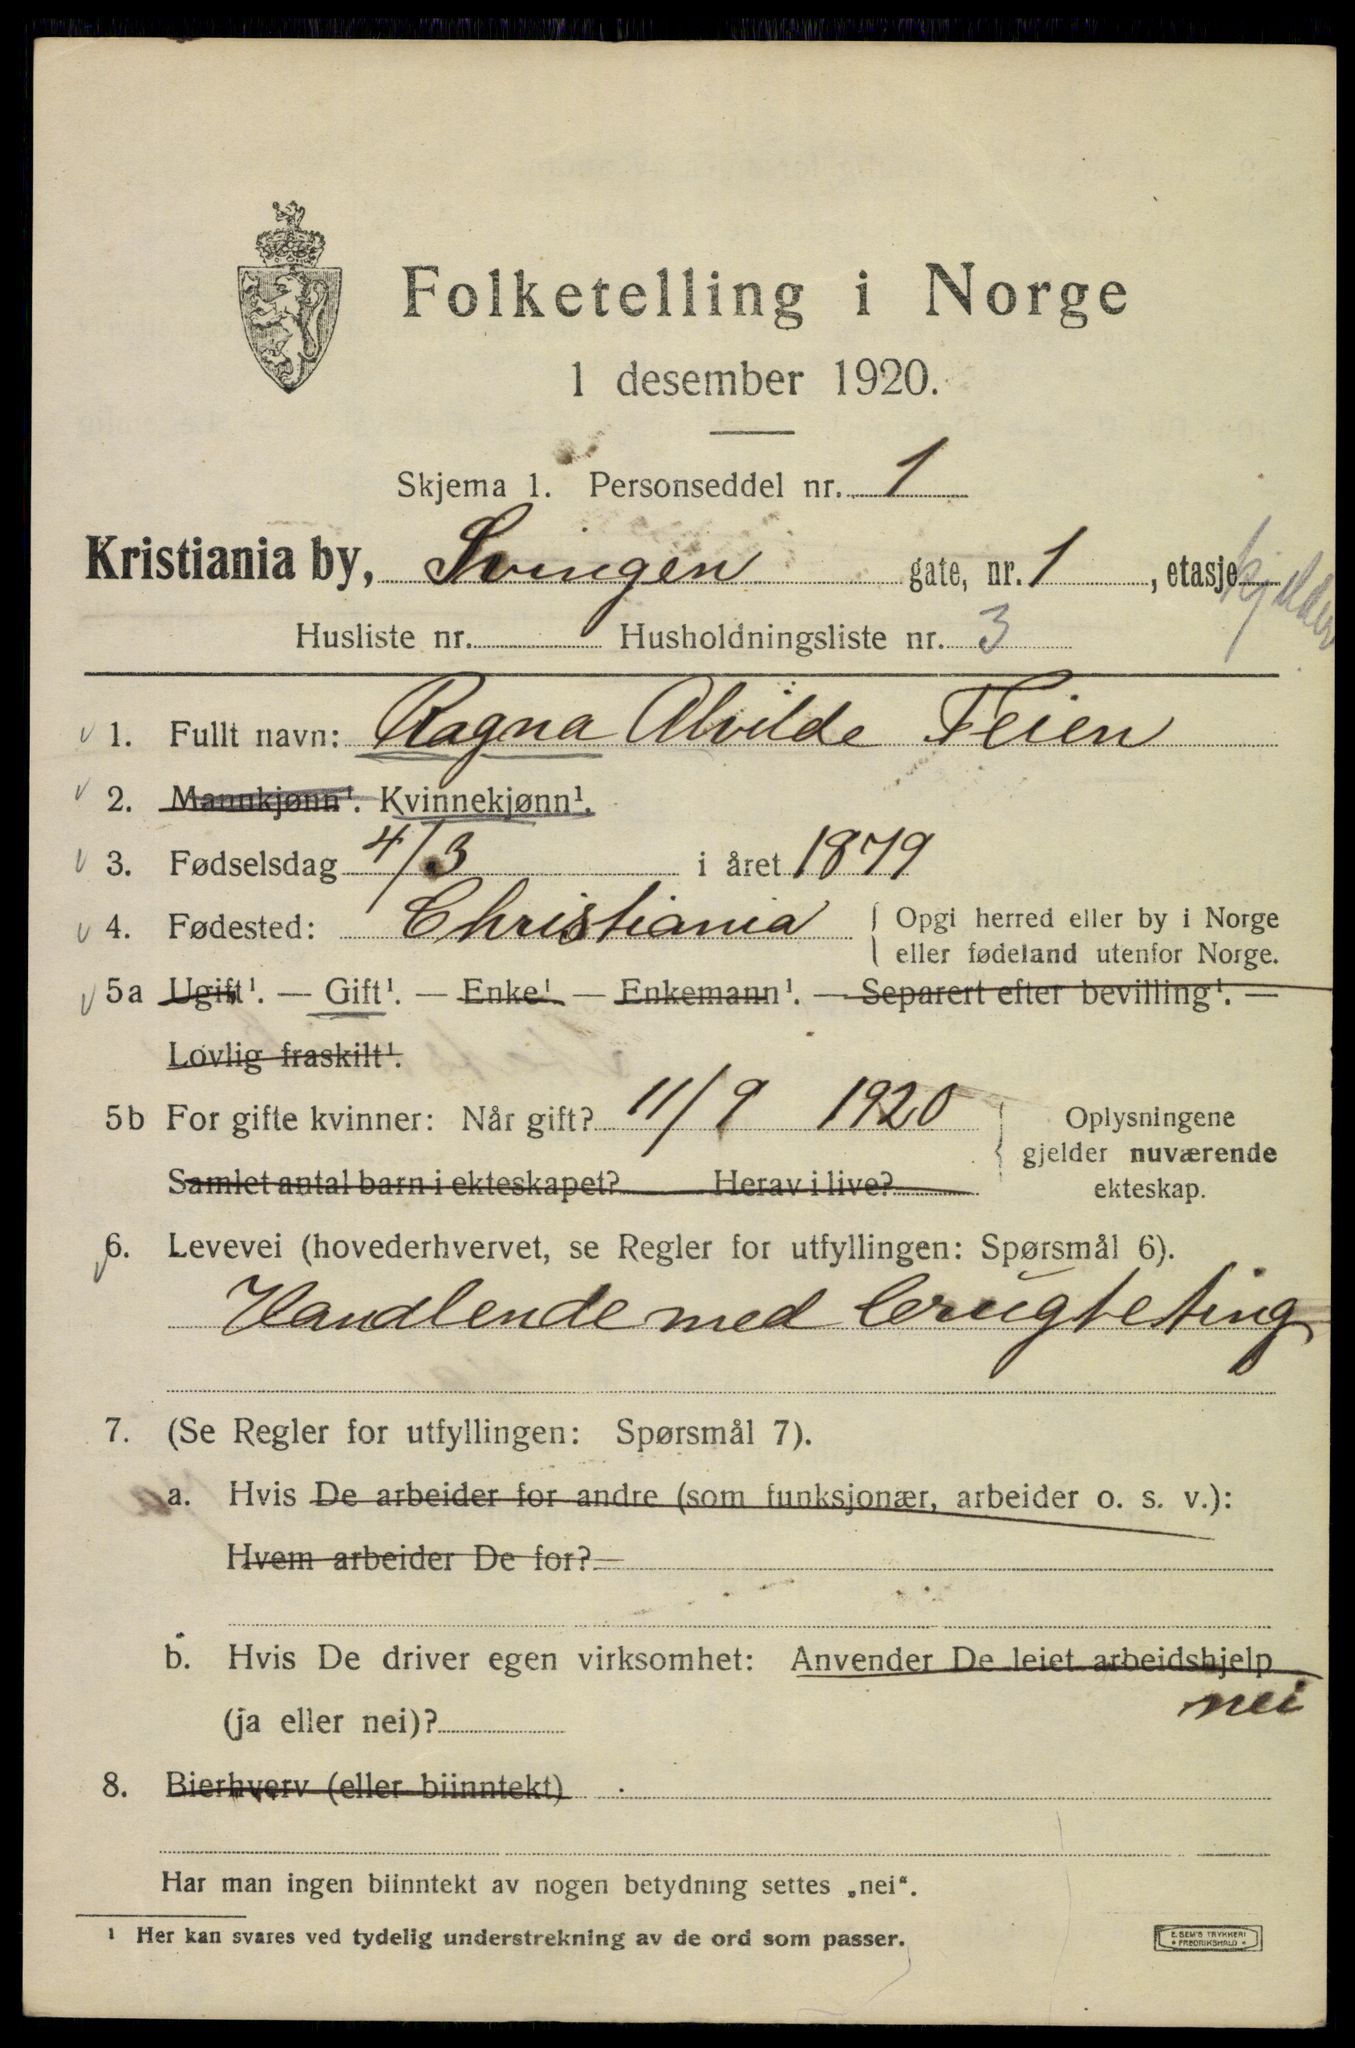 Folketelling i Norge
1 desember 1920.
Skjema 1. Personseddel nr. 1
Kristiania by, Svingen gate, nr. 1, etasje kjelder
Husliste nr. Husholdningsliste nr. 3
1. Fullt navn: Ragna Alvilde Feien
2. Mannkjønn¹. Kvinnekjønn¹.
3. Fødselsdag 4/3 i året 1879
4. Fødested: Christiania { Opgi herred eller by i Norge
eller fødeland utenfor Norge.
5a Ugift¹. — Gift¹. — Enke¹ — Enkemann¹. — Separert efter bevilling¹. —
Lovlig fraskilt¹.
5b For gifte kvinner: Når gift? 11/9 1920
Samlet antal barn i ekteskapet? Herav i live?
Oplysningene
gjelder nuværende
ekteskap.
6. Levevei (hovederhvervet, se Regler for utfyllingen: Spørsmål 6).
Handlende med brugte ting
7. (Se Regler for utfyllingen: Spørsmål 7).
a. Hvis De arbeider for andre (som funksjonær, arbeider o. s. v.):
Hvem arbeider De for?
b. Hvis De driver egen virksomhet: Anvender De leiet arbeidshjelp
(ja eller nei)? nei
8. Bierhverv (eller biinntekt)
Har man ingen biinntekt av nogen betydning settes „nei“.
¹ Her kan svares ved tydelig understrekning av de ord som passer.
E. SEM'S TRYKKERI
FREDRIKSHALD